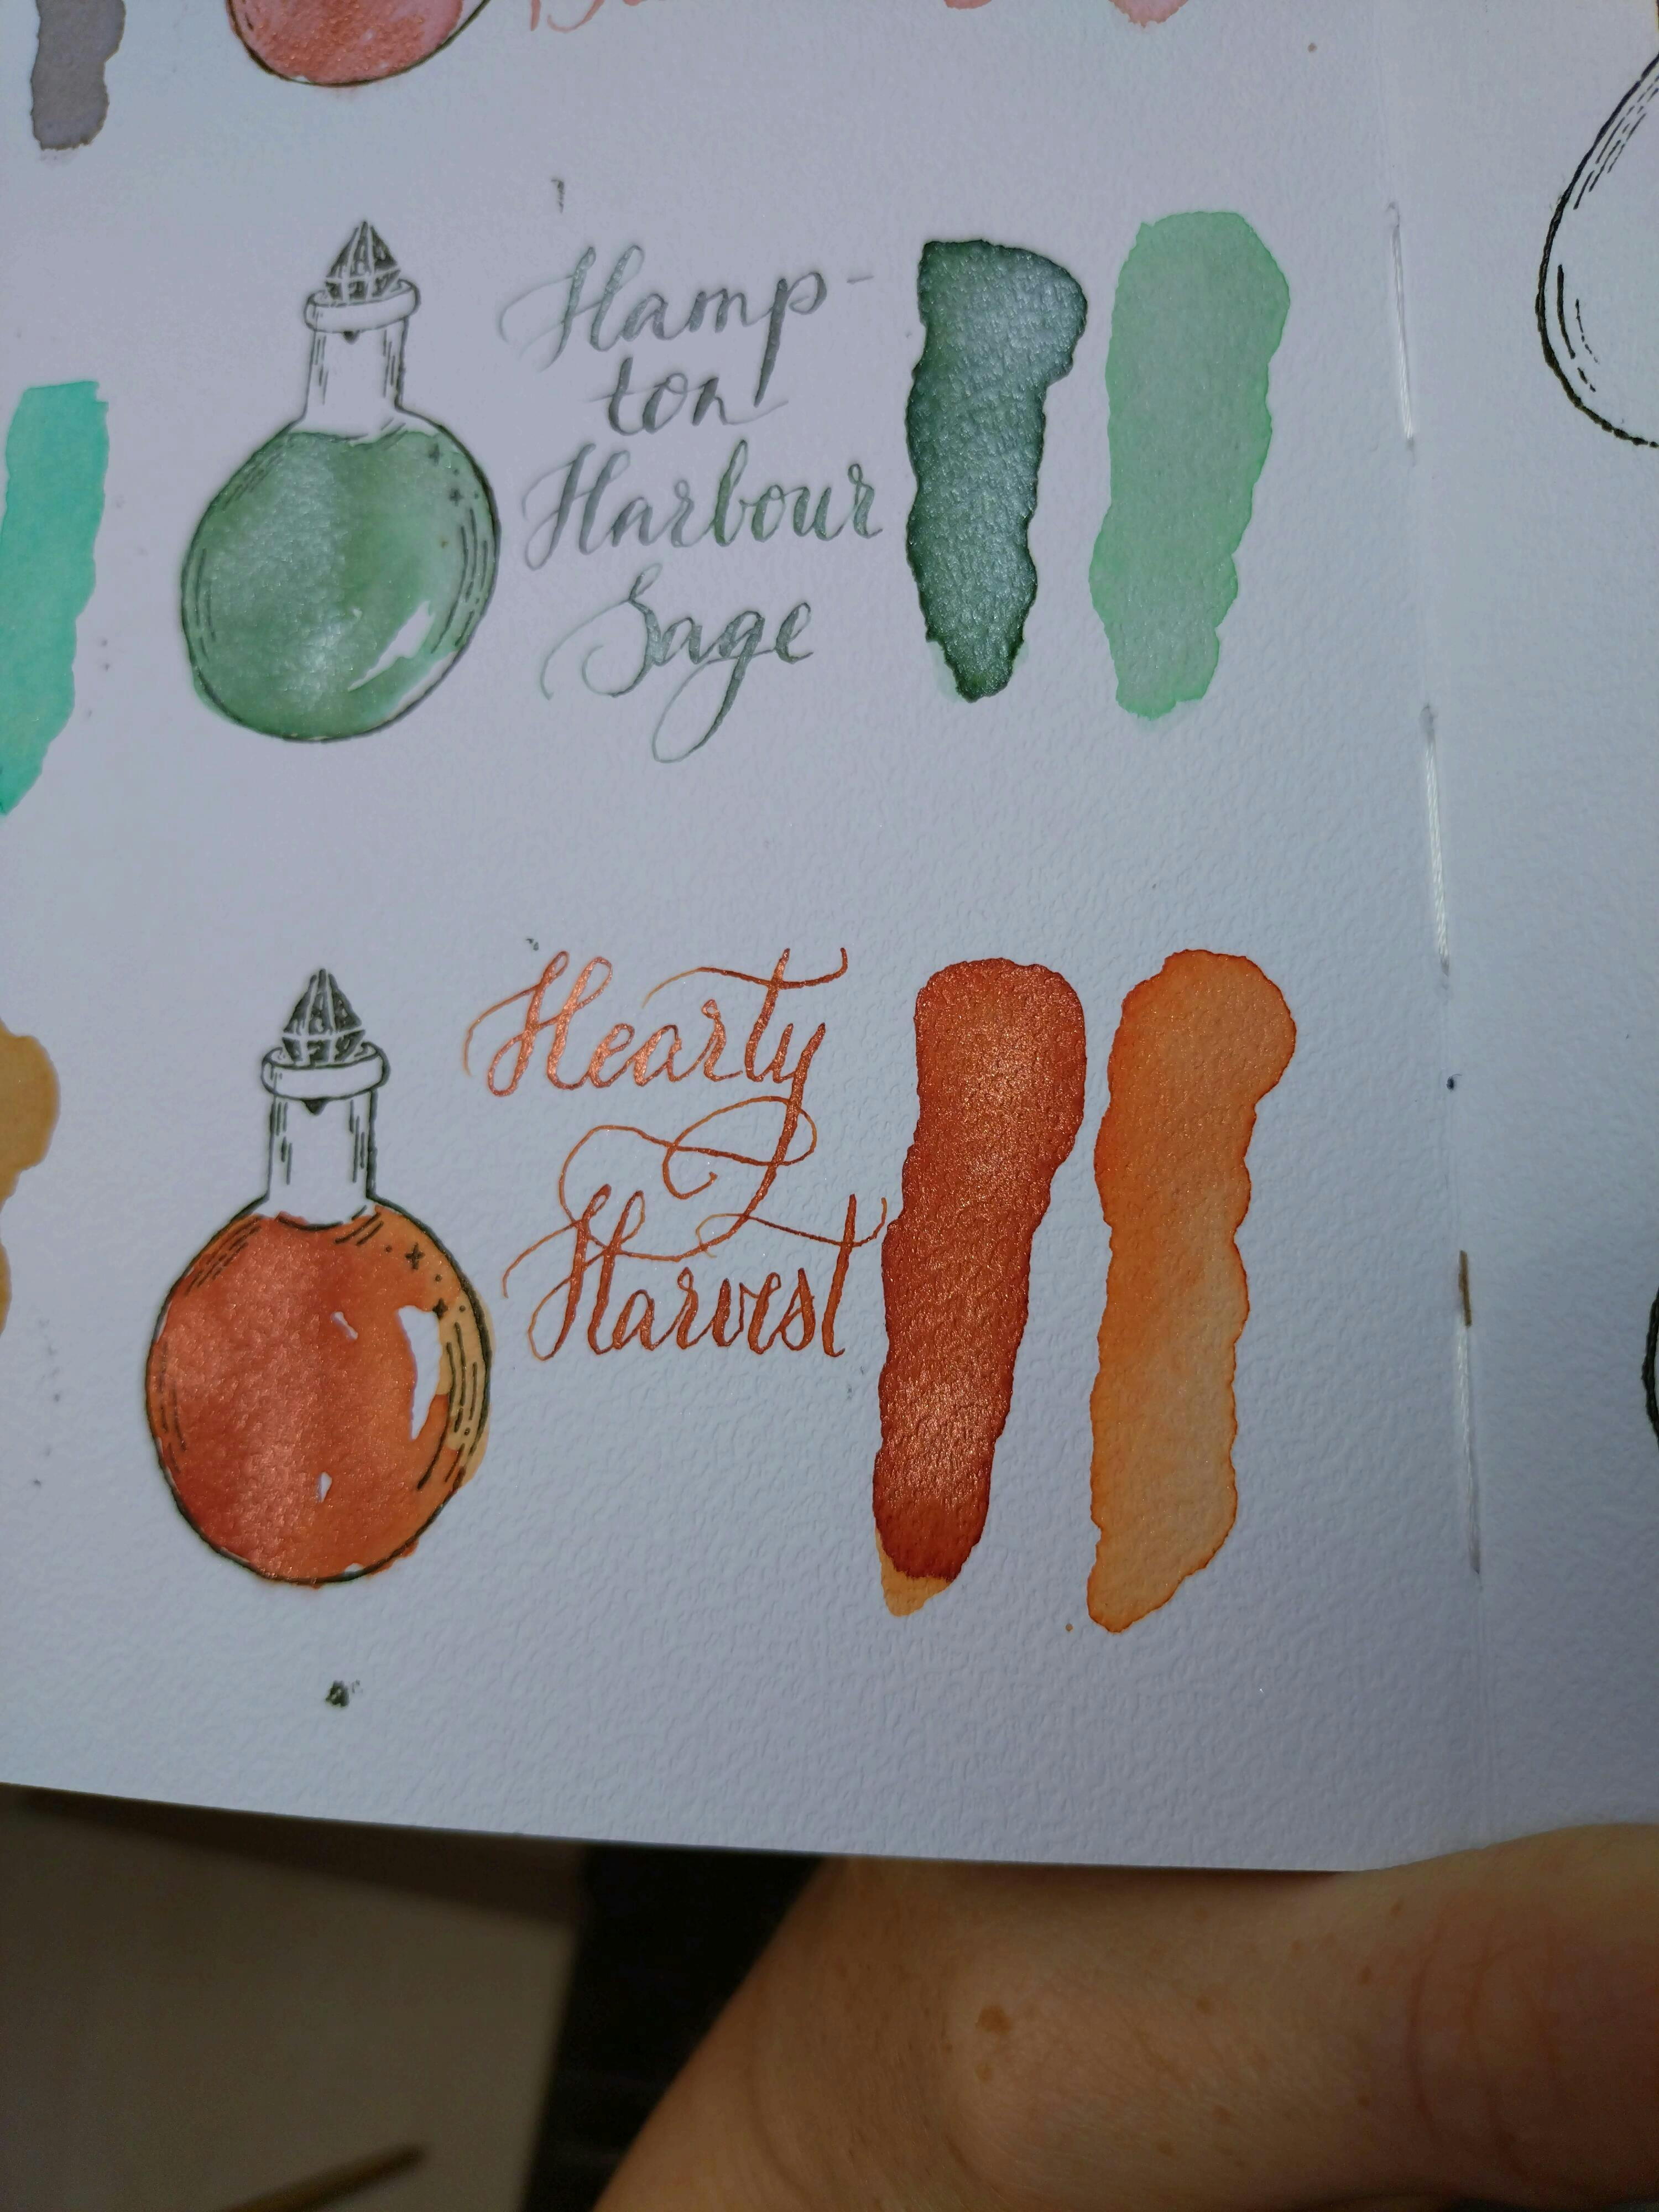 Hamp-
ton
Harbour
Sage
Hearty
Harvest